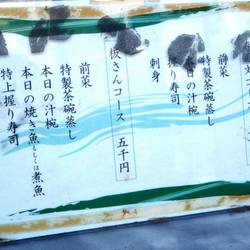 刺身
握り寿司
特製茶碗蒸し
本日の汁椀
板さんコース 五千円
前菜
特製茶碗蒸し
本日の汁椀
本日の焼き魚もしくは煮魚
特上握り寿司